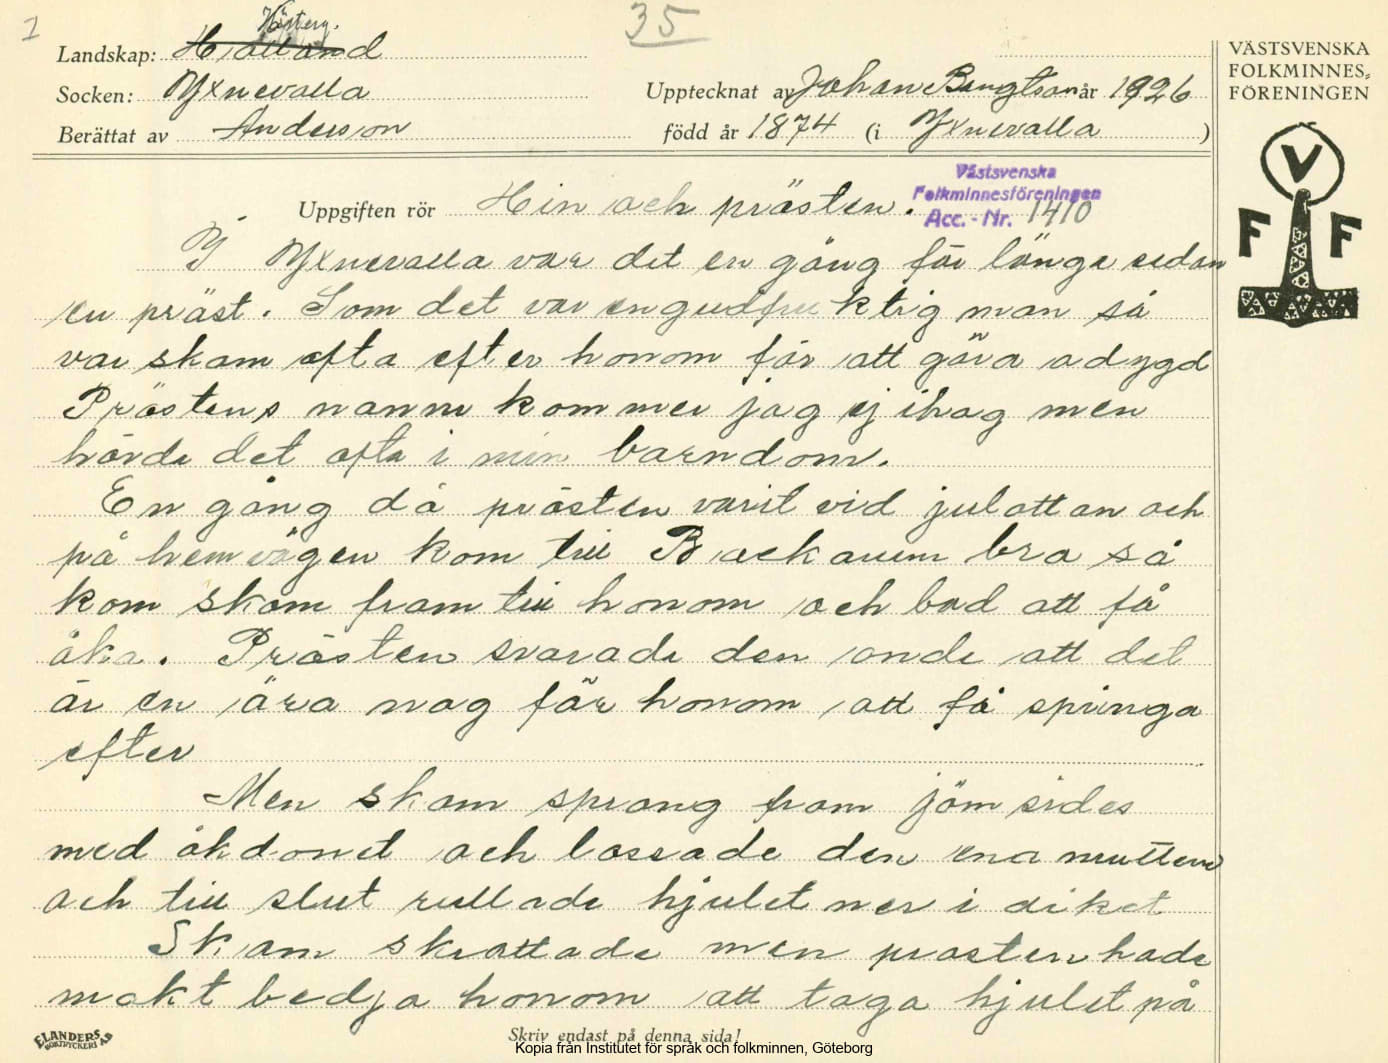 1
35
Västerg.
Landskap: Halland
Socken: Yxnevalla
Upptecknat av Johan Bengtson år 1926
Berättat av Anderson
född år 1874 (i Yxnevalla)
VÄSTSVENSKA
FOLKMINNES=
FÖRENINGEN
V
F F
Uppgiften rör Hin och prästen.
Västsvenska
Folkminnesföreningen
Acc.-Nr. 1410
I Yxnevalla var det en gång för länge sedan
en präst. Som det var en gudfruktig man så
var skam ofta efter honom för att göra odygd
Prästens namn kommer jag ej ihag men
hörde det ofta i min barndom.
En gång då prästen varit vid julottan och
på hemvägen kom till Backarum bro så
kom skam fram till honom och bad att få
åka. Prästen svarade den onde att det
är en ära nog för honom att få springa
efter
Men skam sprang fram jäm sides
med åkdonet och lossade den ena muttern
och till slut rullade hjulet ner i diket
Skam skrattade men prasten hade
makt bedja honom att taga hjulet på
ELANDERS
BOKTRYCKERI AB
Skriv endast på denna sida!
Kopia från Institutet för språk och folkminnen, Göteborg